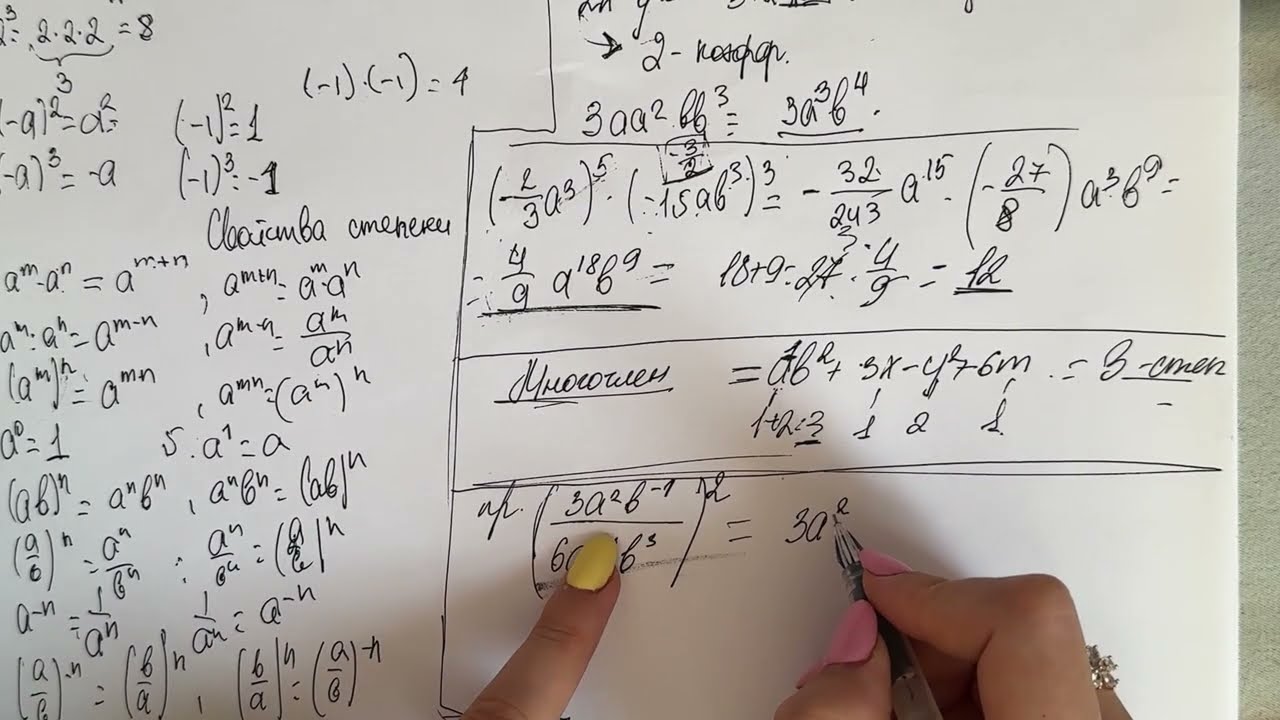 2³= 2·2·2 = 8
3
(-a)²=a²=
(-a)³=-a
(-1)·(-1)=1
(-1)²=1
(-1)³=-1
Свойства степени
aᵐ·aⁿ = aᵐ⁺ⁿ , aᵐ⁺ⁿ=aᵐaⁿ
aᵐ:aⁿ=aᵐ⁻ⁿ , aᵐ⁻ⁿ=aᵐ/aⁿ
(aᵐ)ⁿ=aᵐⁿ , aᵐⁿ=(aᵐ)ⁿ
a⁰=1 5. a¹=a
(ab)ⁿ=aⁿbⁿ , aⁿbⁿ=(ab)ⁿ
(a/b)ⁿ=aⁿ/bⁿ ; aⁿ/bⁿ=(a/b)ⁿ
a⁻ⁿ=1/aⁿ 1/aⁿ=a⁻ⁿ
(a/b)⁻ⁿ=(b/a)ⁿ , (b/a)ⁿ=(a/b)⁻ⁿ
→ 2-коэфф.
3aa²·bb³= 3a³b⁴.
-3/2
(-2/3a³)⁵·(-1,5ab³)³=-32/243a¹⁵·(-27/8)a³b⁹=
=4/9a¹⁸b⁹= 18+9=27·4/9=12
3
Многочлен =ab²+3x-y²+6m.=3-степ
1+2=3 1 2 1
пр. (3a²b⁻¹/6a b³)²= 3a²